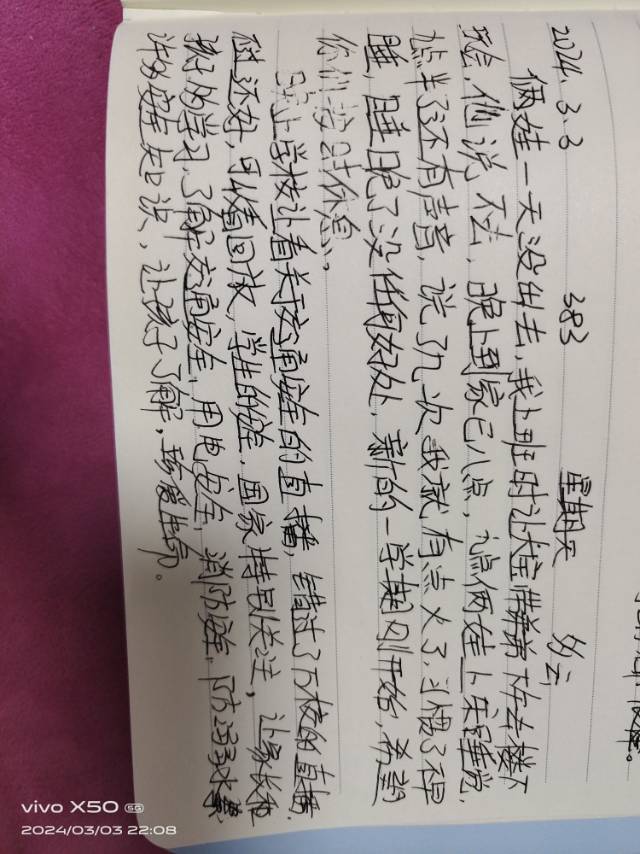 2024.3.3 383 星期天 多云
俩娃一天没出去,我上班时让大宝带弟弟下午去楼下
玩会,他说不去,晚上到家已八点,九点俩娃上床睡觉,
十点半了还有声音,说了几次我就有点火了,习惯了早
睡,睡晚了没任何好处,新的一学期刚开始,希望
你们按时休息,
晚上学校让看关于交通安全的直播,错过了下校的直播,
还好,可以看回放,学生的安全,国家特别关注,让家长和
孩子的学习,了解交通安全,用电安全,消防安全,防溺水等
许多安全知识,让孩子了解,珍爱生命。
vivo X50 5G
2024/03/03 22:08